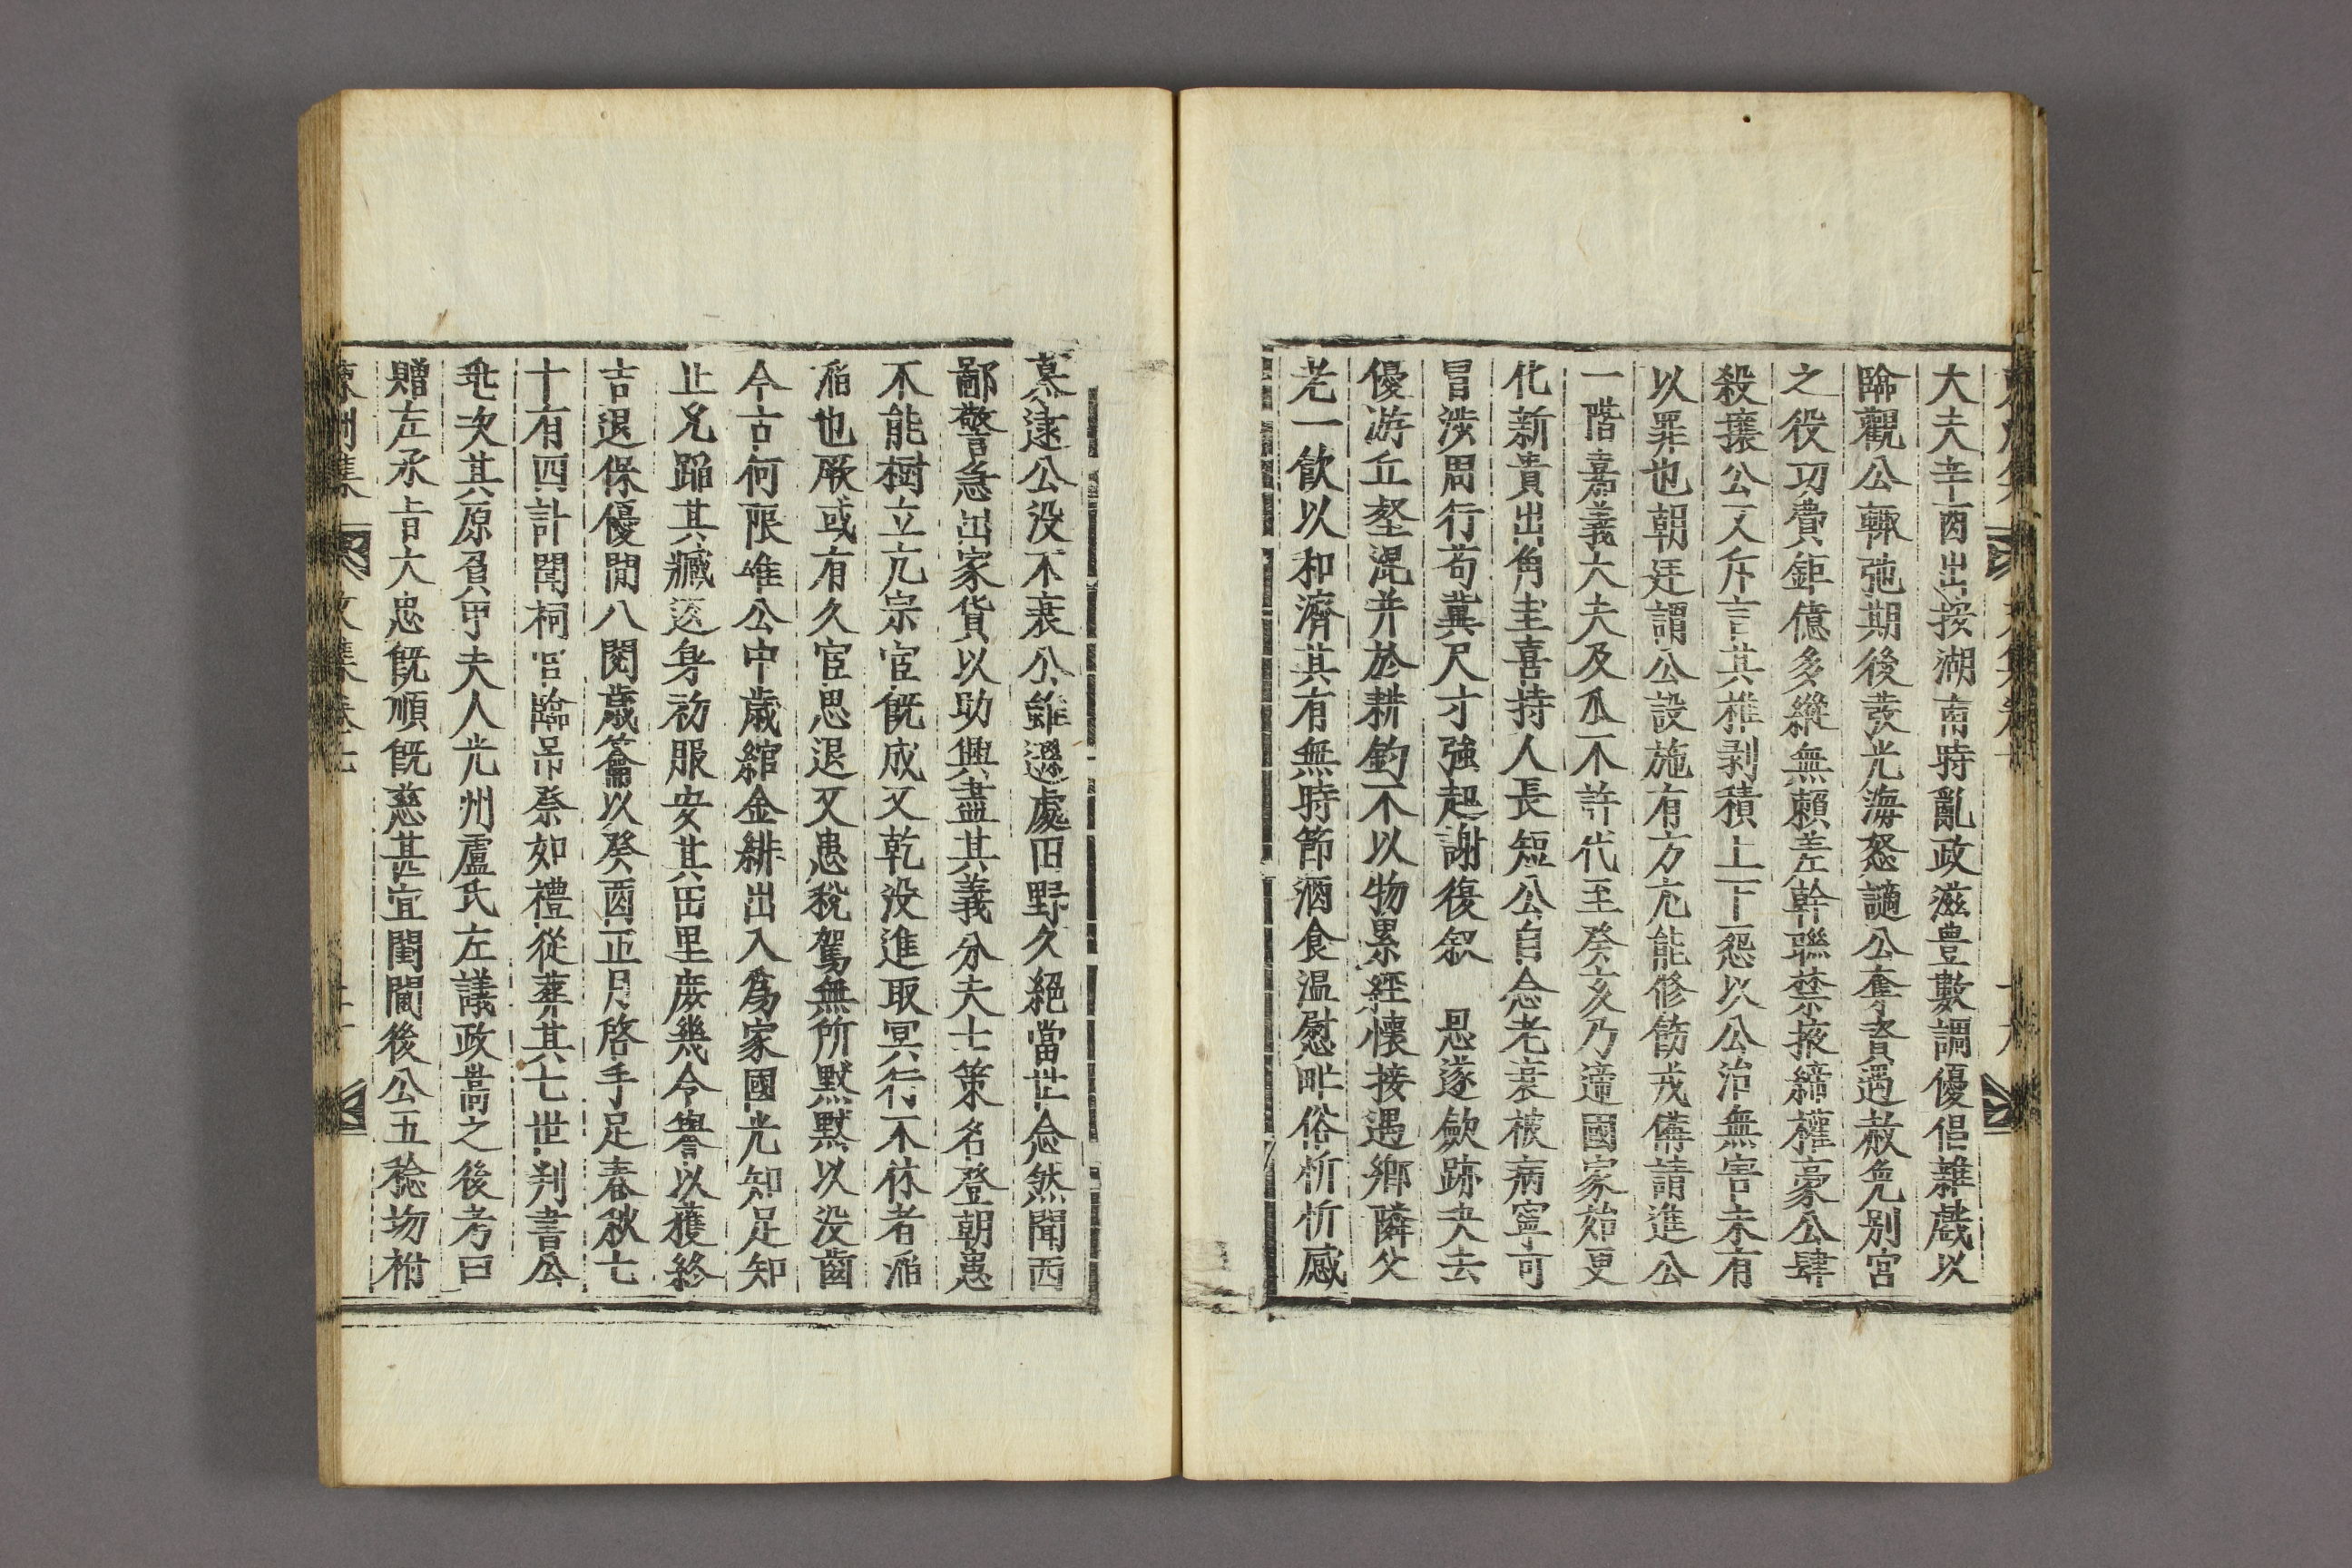 大夫辛酉出按湖南時亂政滋豊數謂優倡雜戱以
臨觀公輒弛期後發光海怒讁公奪資遇赦免別宮
之役功費鉅億多縱無賴差幹聯禁掖締權豪公肆
殺攘公又斥言其椎剥積上下怨以公治無害未有
以罪也朝廷謂公設施有方尤能修飭戎備請進公
一階嘉義大夫及瓜不許代至癸亥乃遞國家始更
化新貴出角圭喜持人長短公自念老衰被病寧可
冒涉周行苟冀尺寸強起謝復叙 恩遂歛跡夬去
優游丘壑混并於耕釣不以物累經懷接遇鄉隣父
老一飮以和濟其有無時節酒食温慰畂俗忻忻感
慕逮公没不衰公雖遯處田野久絶當世念然聞西
鄙警急出家貨以助興盡其義分夫士策名登朝患
不能樹立亢宗宦旣成又乾没進取冥行不休者滔
滔也厥或有久宦思退又患稅駕無所默默以没齒
今古何限唯公中歲綰金緋出入爲家國光知足知
止兄蹈其臧返身初服安其田里庶幾令譽以獲終
吉退保優閒八閱歲籥以癸酉正月啓手足春秋七
十有四計聞祠官臨吊祭如禮從葬其七世判書公
兆次其原負甲夫人光州盧氏左議政嵩之後考曰
贈左承旨大忠旣順旣慈甚宜閨閫後公五稔歾祔
東州集 文集卷七